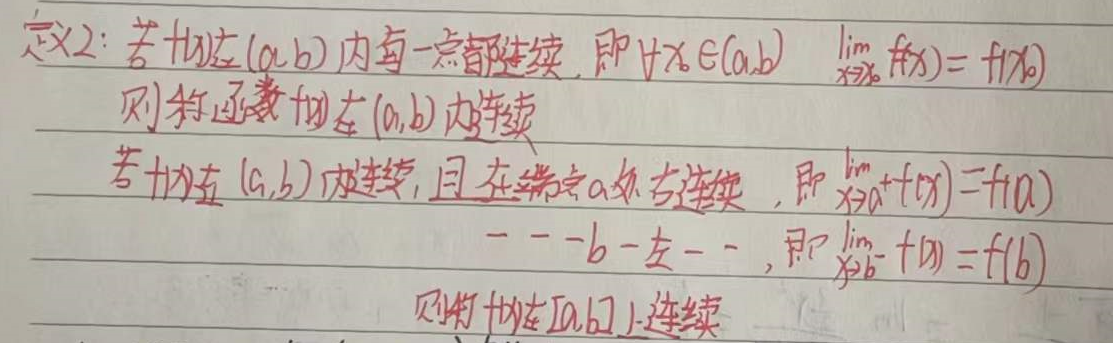 定义2: 若f(x)在(a,b)内每一点都连续, 即∀x₀∈(a,b) lim x→x₀ f(x)=f(x₀)
则称函数f(x)在(a,b)内连续
若f(x)在(a,b)内连续, 且在端点a处右连续, 即 lim x→a⁺ f(x)=f(a)
- - - b - 左 - -, 即 lim x→b⁻ f(x)=f(b)
则称f(x)在[a,b]上连续